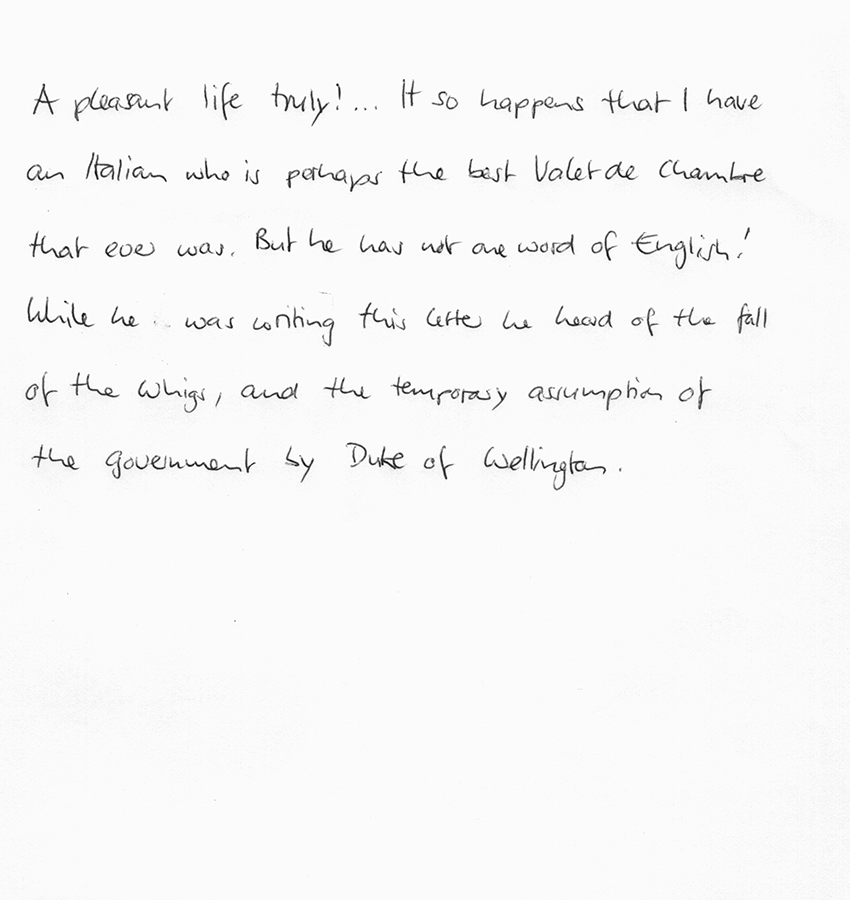 A pleasant life truly!... It so happens that I have
an Italian who is perhaps the best Valet de Chambre
that ever was. But he has not one word of English!
While he .. was writing this letter he heard of the fall
of the Whigs, and the temporary assumption of
the government by Duke of Wellington.